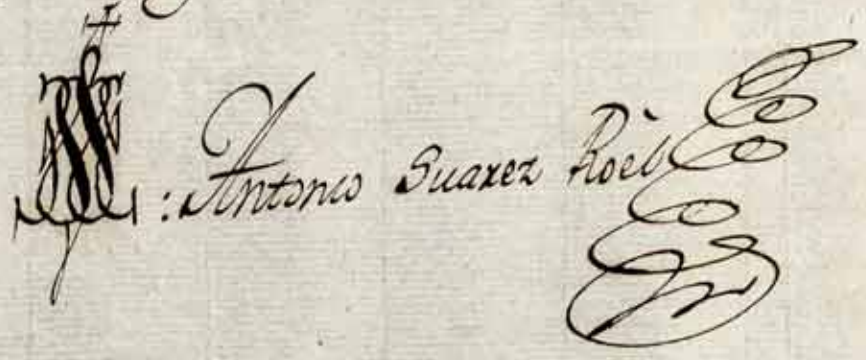 : Antonio Suarez Roèl